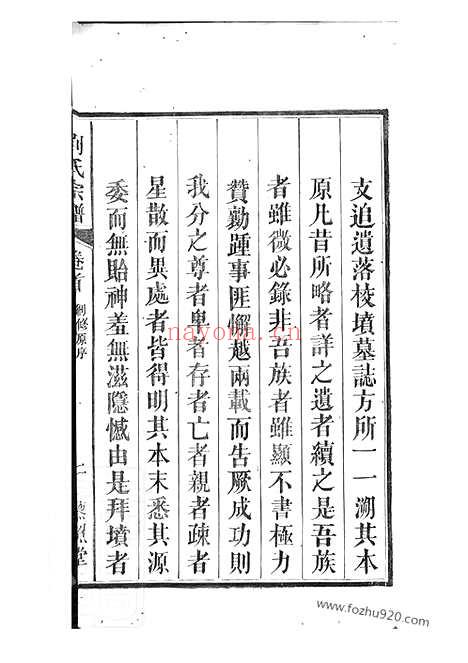 支追遺落校墳墓誌方所一一溯其本
原凡昔所略者詳之遺者續之是吾族
者雖微必錄非吾族者雖顯不書極力
贊勷踵事匪懈越兩載而告厥成功則
我分之尊者卑者存者亡者親者疎者
星散而異處者皆得明其本末悉其源
委而無貽神羞無滋隱憾由是拜墳者
劉氏宗譜 卷首 創修原序 二
nayona.cn
www.fozhu920.com